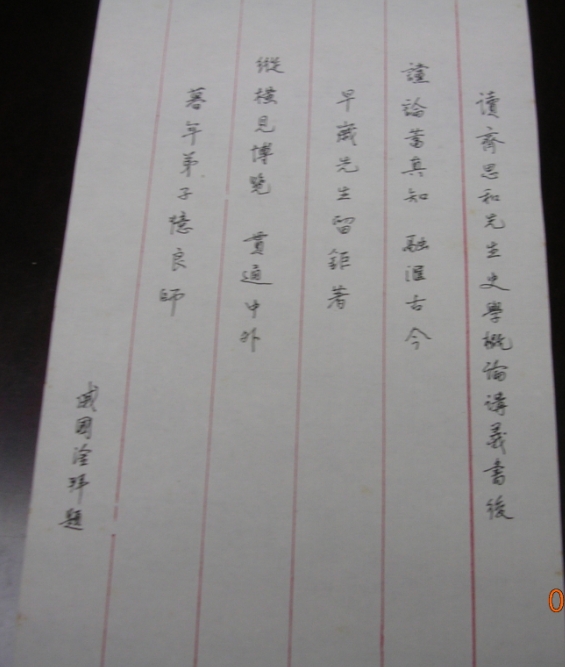 讀齊思和先生史學概論講義書後
讜論蓄真知 融滙古今
早歲先生留鉅著
縱橫見博覽 貫通中外
暮年弟子憶良師
戚國淦拜題
0